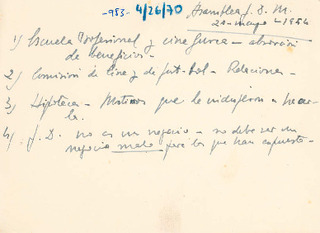 -983- 4/26/70 Asamblea J. D. M.
20-mayo-1954
1) Escuela Profesional y cine Gurea - absorción
de beneficios -
2) Comisión de Cine y de fut-bol - Relaciones -
3) Hipoteca - Motivos que le indujeron a hacer-
la.
4) J. D. no es un negocio - no debe ser un
negocio malo para los que han expuesto -